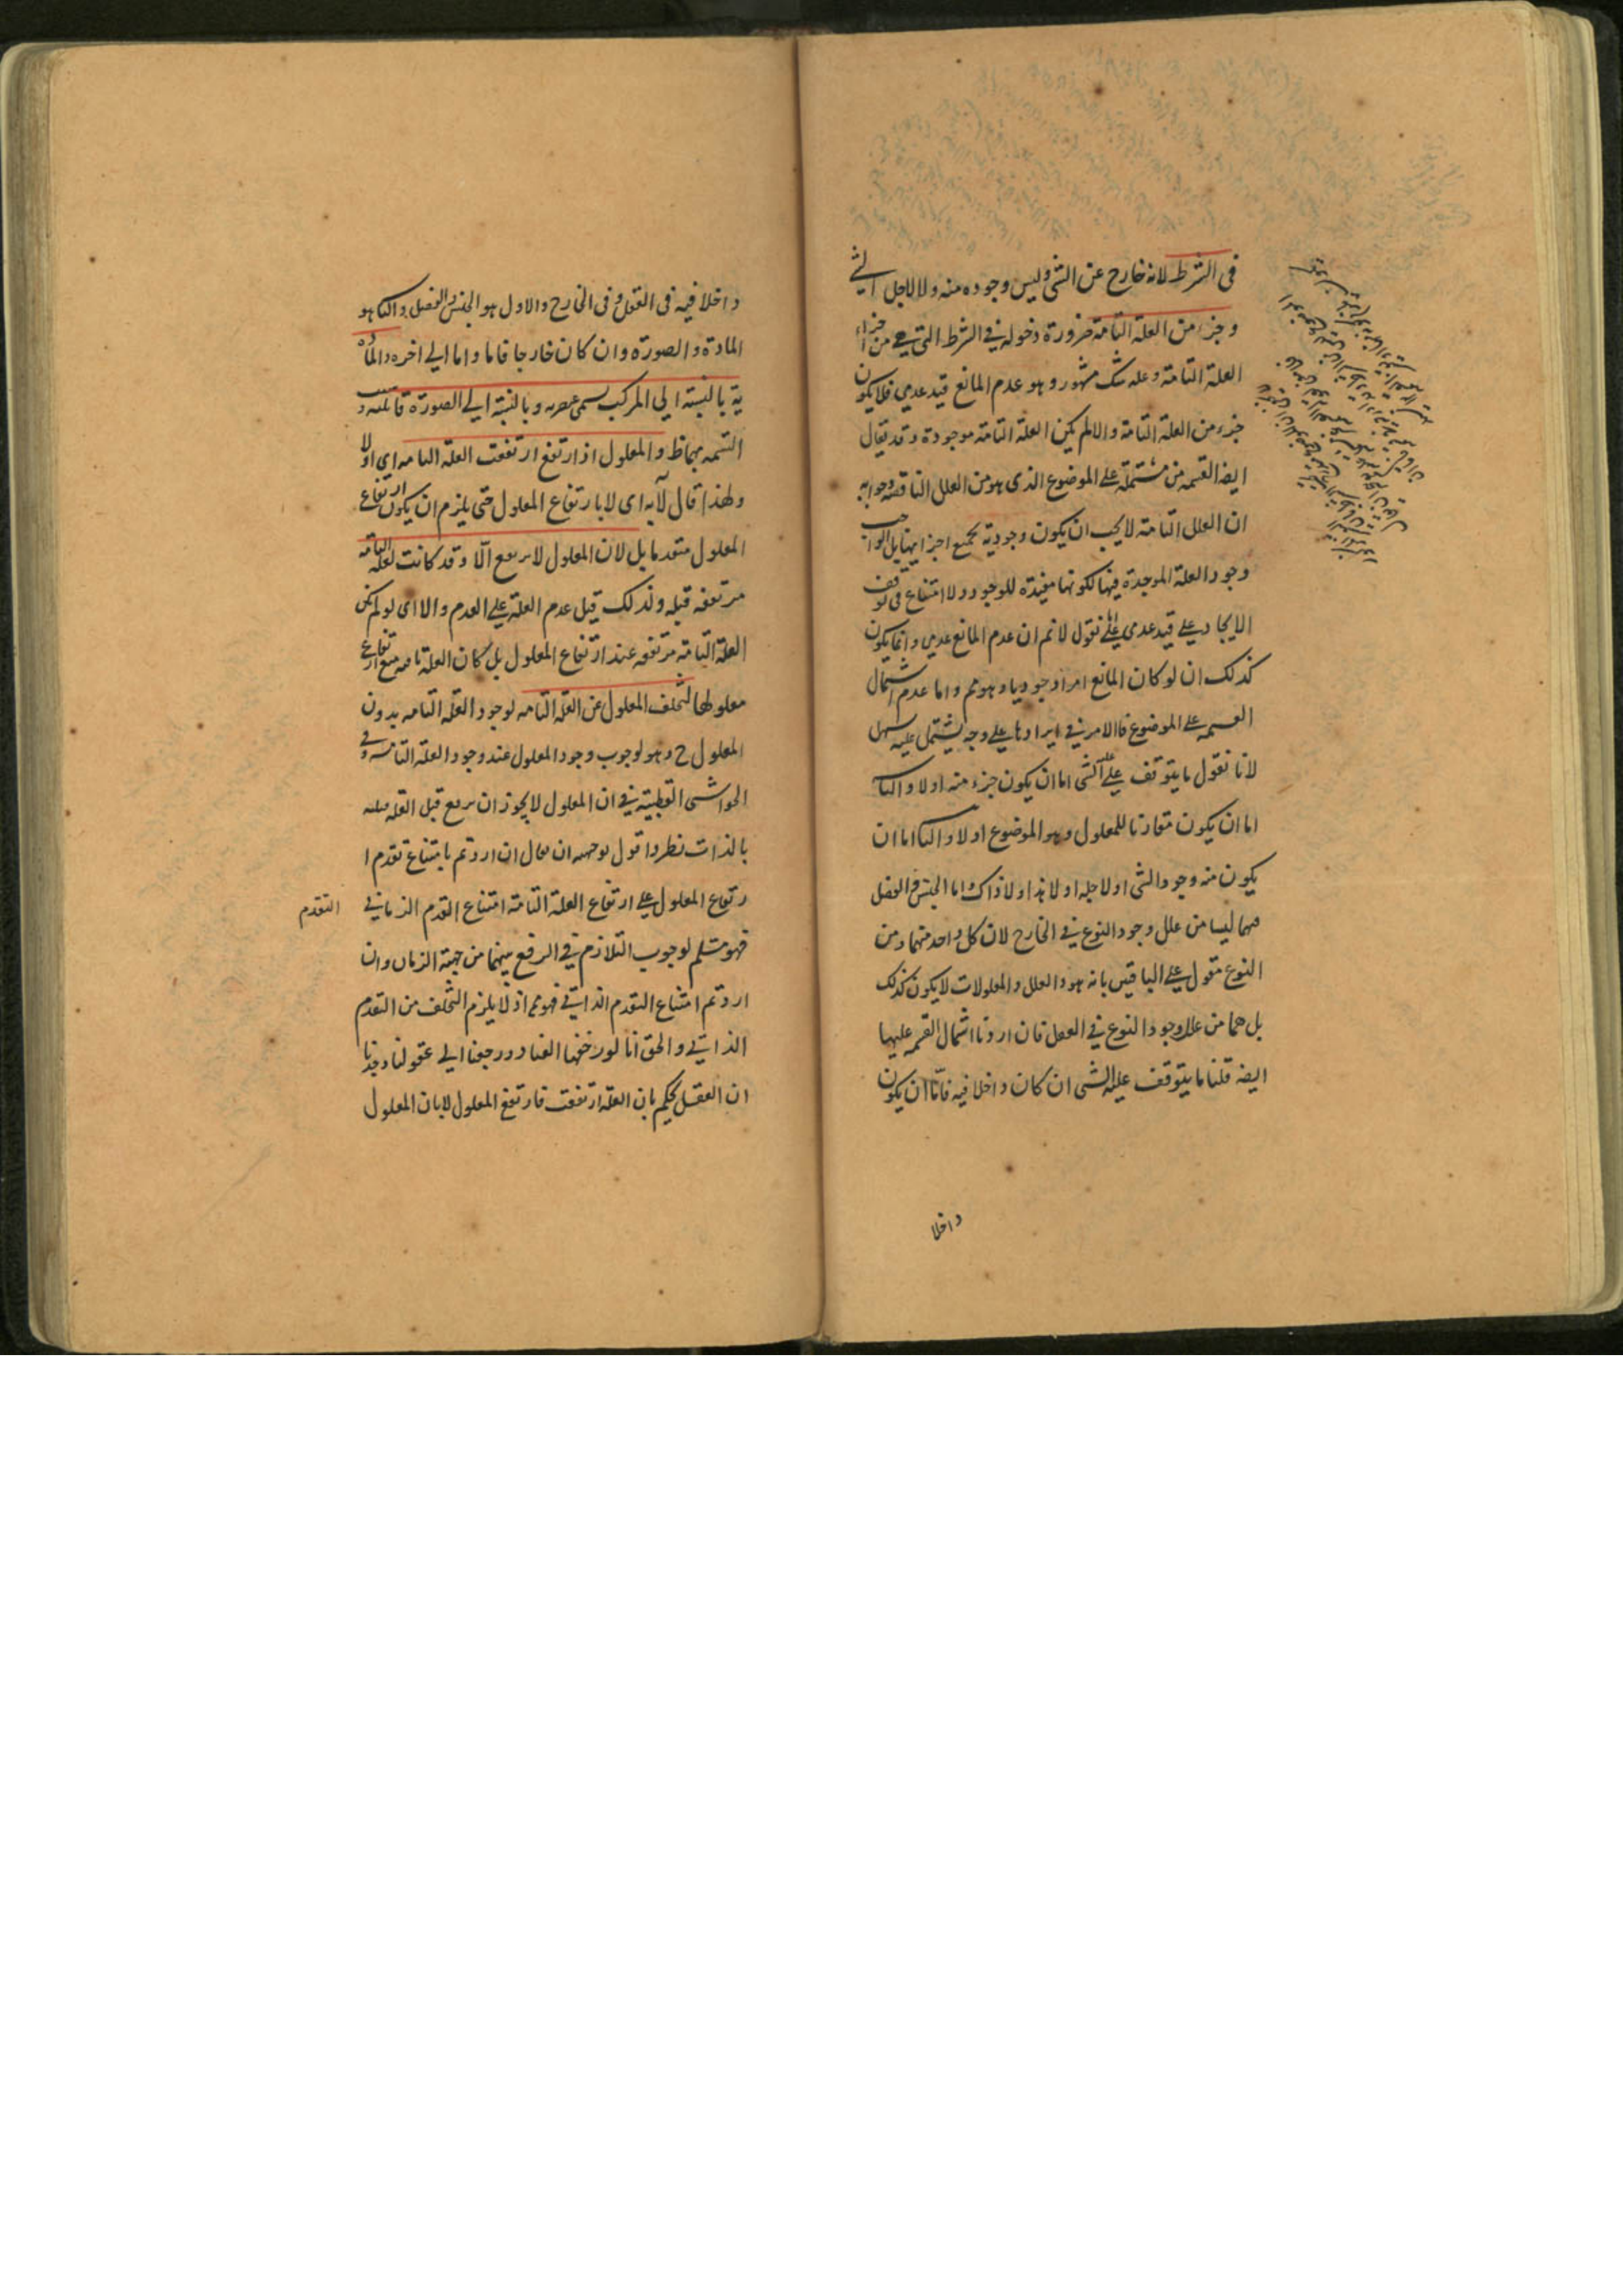 فى الشرط لانه خارج عن الشى وليس وجوده منه ولا لاجل الشى
وجزء من العلة التامة ضرورة دخوله في الشرط التى هي من اجزاء
العلة التامة وعليه شك مشهور وهو عدم المانع قيد عدمي فلا يكون
جزء من العلة التامة والا لم يكن العلة التامة موجودة وقد يقال
ايضا القسمة مشتملة على الموضوع الذى هو من العلل الناقصة وجوابه
ان العلل التامة لا يجب ان يكون وجودية بجميع اجزايها بل الواجب
وجود العلة الموجدة فيها لكونها مفيدة للوجود ولا امتناع فى توقف
الايجاد على قيد عدمي نقول لا نم ان عدم المانع عدمي وانما يكون
كذلك ان لو كان المانع امرا وجوديا وهو مم واما عدم اشتمال
القسمه على الموضوع فالامر في ايرادها على وجه يشتمل عليه سهل
لانا نقول ما يتوقف عليه الشى اما ان يكون جزء منه اولا والثانى
اما ان يكون مقارنا للمعلول وهو الموضوع اولا والثانى اما ان
يكون منه وجود الشى او لاجله او لا هذا ولا ذاك واما الجنس والفصل
فهما ليسا من علل وجود النوع في الخارج لان كل واحد منهما ومن
النوع مقول على الباقيين بانه هو والعلل والمعلولات لا يكون كذلك
بل هما من علل وجود النوع في العقل فان اردنا اشتمال القسمه عليها
ايضا قلنا ما يتوقف عليه الشى ان كان داخلا فيه فاما ان يكون
داخلا
داخلا فيه فى العقل او فى الخارج والاول هو الجنس والفصل والثانى هو
المادة والصورة وان كان خارجا فاما واما الي اخره والماد
ية بالنسبة الي المركب يسمى عنصريه وبالنسبة الي الصورة قابلية و
التسمه بهما ظ والمعلول اذا ارتفع ارتفعت العلة التامه اى اولا
ولهذا قال لا به اى لا بارتفاع المعلول حتى يلزم ان يكون ارتفاع
المعلول متقدما بل لان المعلول لا يرتفع الا وقد كانت العلة التامة
مرتفعه قبله ولذلك قيل عدم العلة علة العدم والا اى لو لم يكن
العلة التامة مرتفعه عند ارتفاع المعلول بل كان العلة تامه مع ارتفاع
معلولها لتخلف المعلول عن العلة التامه لوجود العلة التامه بدون
المعلول ح وهو لوجوب وجود المعلول عند وجود العلة التامه وفي
الحواشى القطبية في ان المعلول لا يجوز ان يرتفع قبل العلة قبليه
بالذات نظر واقول توجيهه ان يقال ان اردتم بامتناع تقدم ا
رتفاع المعلول على ارتفاع العلة التامة امتناع التقدم الزماني
التقدم
فهو مسلم لوجوب التلازم في الرفع بينهما من جهة الزمان وان
اردتم امتناع التقدم الذاتي فهو مم اذ لا يلزم التخلف من التقدم
الذاتي والحق انا لو رفضنا العناد ورجعنا الي عقولنا وجدنا
ان العقل يحكم بان العلة ارتفعت فارتفع المعلول لا بان المعلول